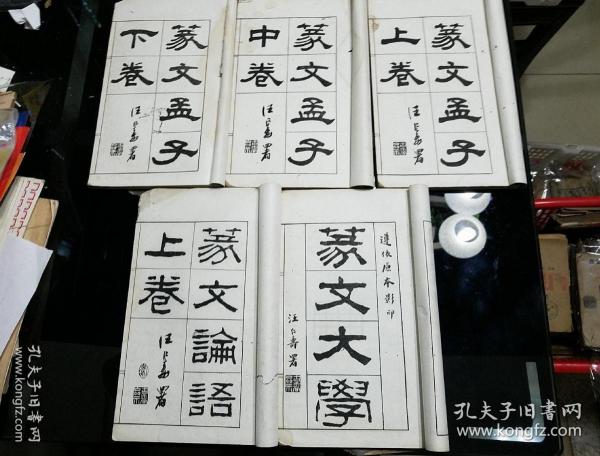 篆文孟子
下卷
汪仁壽署
篆文孟子
中卷
汪仁壽署
篆文孟子
上卷
汪仁壽署
篆文論語
上卷
汪仁壽署
遵依原本影印
篆文大學
汪仁壽署
孔夫子旧书网
www.kongfz.com
孔夫子旧书网
www.kongfz.com